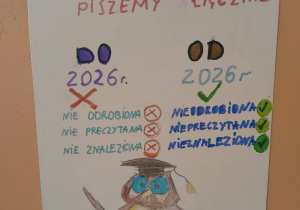 PISZEMY ŁĄCZNIE
DO OD
2026r. 2026r.
NIE ODROBIONA NIEODROBIONA
NIE PRZECZYTANA NIEPRZECZYTANA
NIE ZNALEZIONA NIEZNALEZIONA